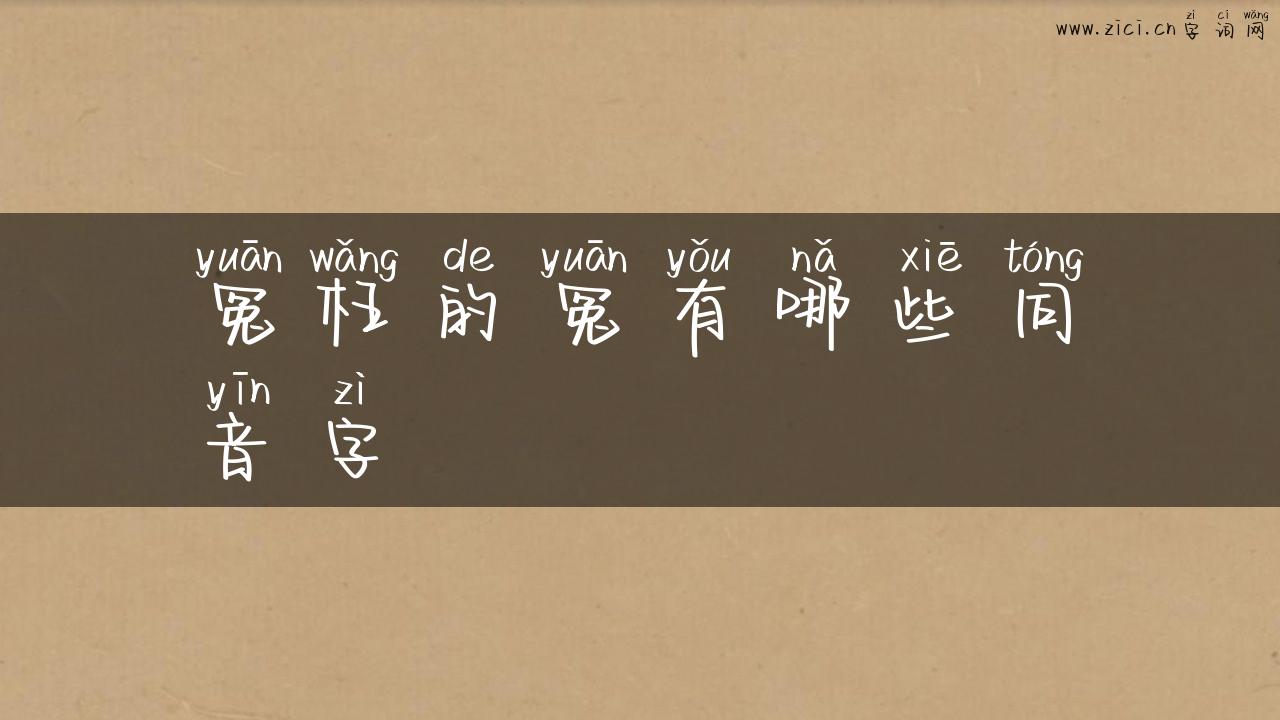 zì cí wǎng
www.zici.cn 字词网
yuān wǎng de yuān yǒu nǎ xiē tóng
冤枉的冤有哪些同
yīn zì
音字